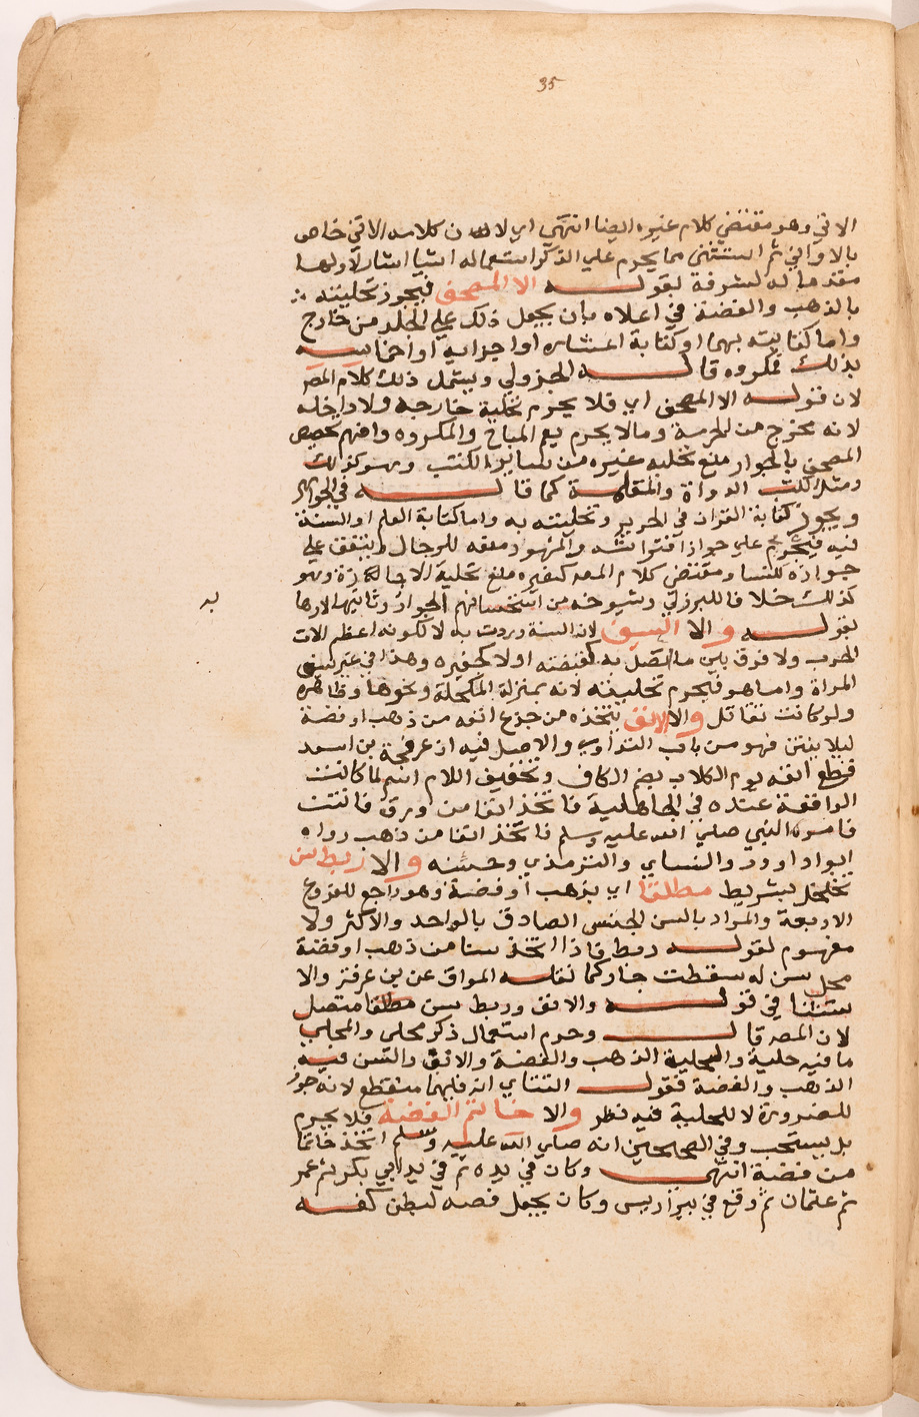 35
الاتي وهو مقتضي كلام غيره ايضا انتهي اي لان كلامه الاتي خاص
بالاواني ثم استثني مما يحرم علي الذكر استعماله اشيا اشار لاولها
مقدما له لشرفه بقوله الا المصحف فيجوز تحليته
بالذهب والفضة في اعلاه بان يجعل ذلك علي الجلد من خارج
واما كتابته بهما او كتابة اعشاره او اجزايه او اخماسه
بذلك فمكروه قاله الجزولي ويشمل ذلك كلام المصـ
لان قوله الا المصحف اي فلا يحرم تحلية خارجه ولا داخله
لانه مخرج من الحرمة وما لا يحرم يعم المباح والمكروه وافهم تخصيص
المصحف بالجواز منع تحلية غيره من ساير الكتب وهو كذلك
ومثل الكتب الدواة والمقلمة كما قاله في الجواهر
ويجوز كتابة القران في الحرير وتحليته به واما كتابة العلم او السنة
فيه فيتخرج علي جواز افتراشه والمشهور منعه للرجال ويتفق علي
جوازه للنسا ومقتضي كلام المصـ كغيره منع تحلية الاجازة وهو
كذلك خلافا للبرزلي وشيوخه من استحسانهم الجواز وثانيها لارها
به
بقوله والا السيف لان السنة وردت به لا لكونه اعظم الات
الحرب ولا فرق بين ما اتصل به كقبضته او لا كغيره وهذا في غير سيف
المراة واما هو فيحرم تحليته لانه بمنزلة المكحلة ونحوها وظاهره
ولو كانت تقاتل والا الانف يتخذه من جدع انفه من ذهب او فضة
ليلا ينتن فهو من باب التداوي والاصل فيه ان عرفجة بن اسعد
قطع انفه يوم الكلاب بضم الكاف وتخفيف اللام اسم لما كانت
الواقعة عنده في الجاهلية فاتخذ انفا من ورق فانتنت
فامره النبي صلي الله عليه وسلم فاتخذ انفا من ذهب رواه
ابو داوود والنساي والترمذي وحسنه والا ربط سن
تخلخل بشريط مطلقا اي بذهب او فضة وهو راجع للفروع
الاربعة والمراد بالسن الجنس الصادق بالواحد والاكثر ولا
مفهوم لقوله ربط فاذا اتخذ سنا من ذهب او فضة
محل سن له سقطت جاز كما نقله المواق عن بن عرفة والا
ستثنا في قوله والانف وربط سن مطلقا متصل
لان المصـ قال وحرم استعمال ذكر محلي والمحلي
ما فيه حلية والتحلية الذهب والفضة والانف والسن فيه
الذهب والفضة فقول التتاي انه فيهما منقطع لانه جوز
للضرورة لا للحلية فيه نظر والا خاتم الفضة فلا يحرم
بل يستحب وفي الصحيحين انه صلي الله عليه وسلم اتخذ خاتما
من فضة انتهي وكان في يده ثم في يد ابي بكر ثم عمر
ثم عثمان ثم وقع في بير اريس وكان يجعل فصه لبطن كفه